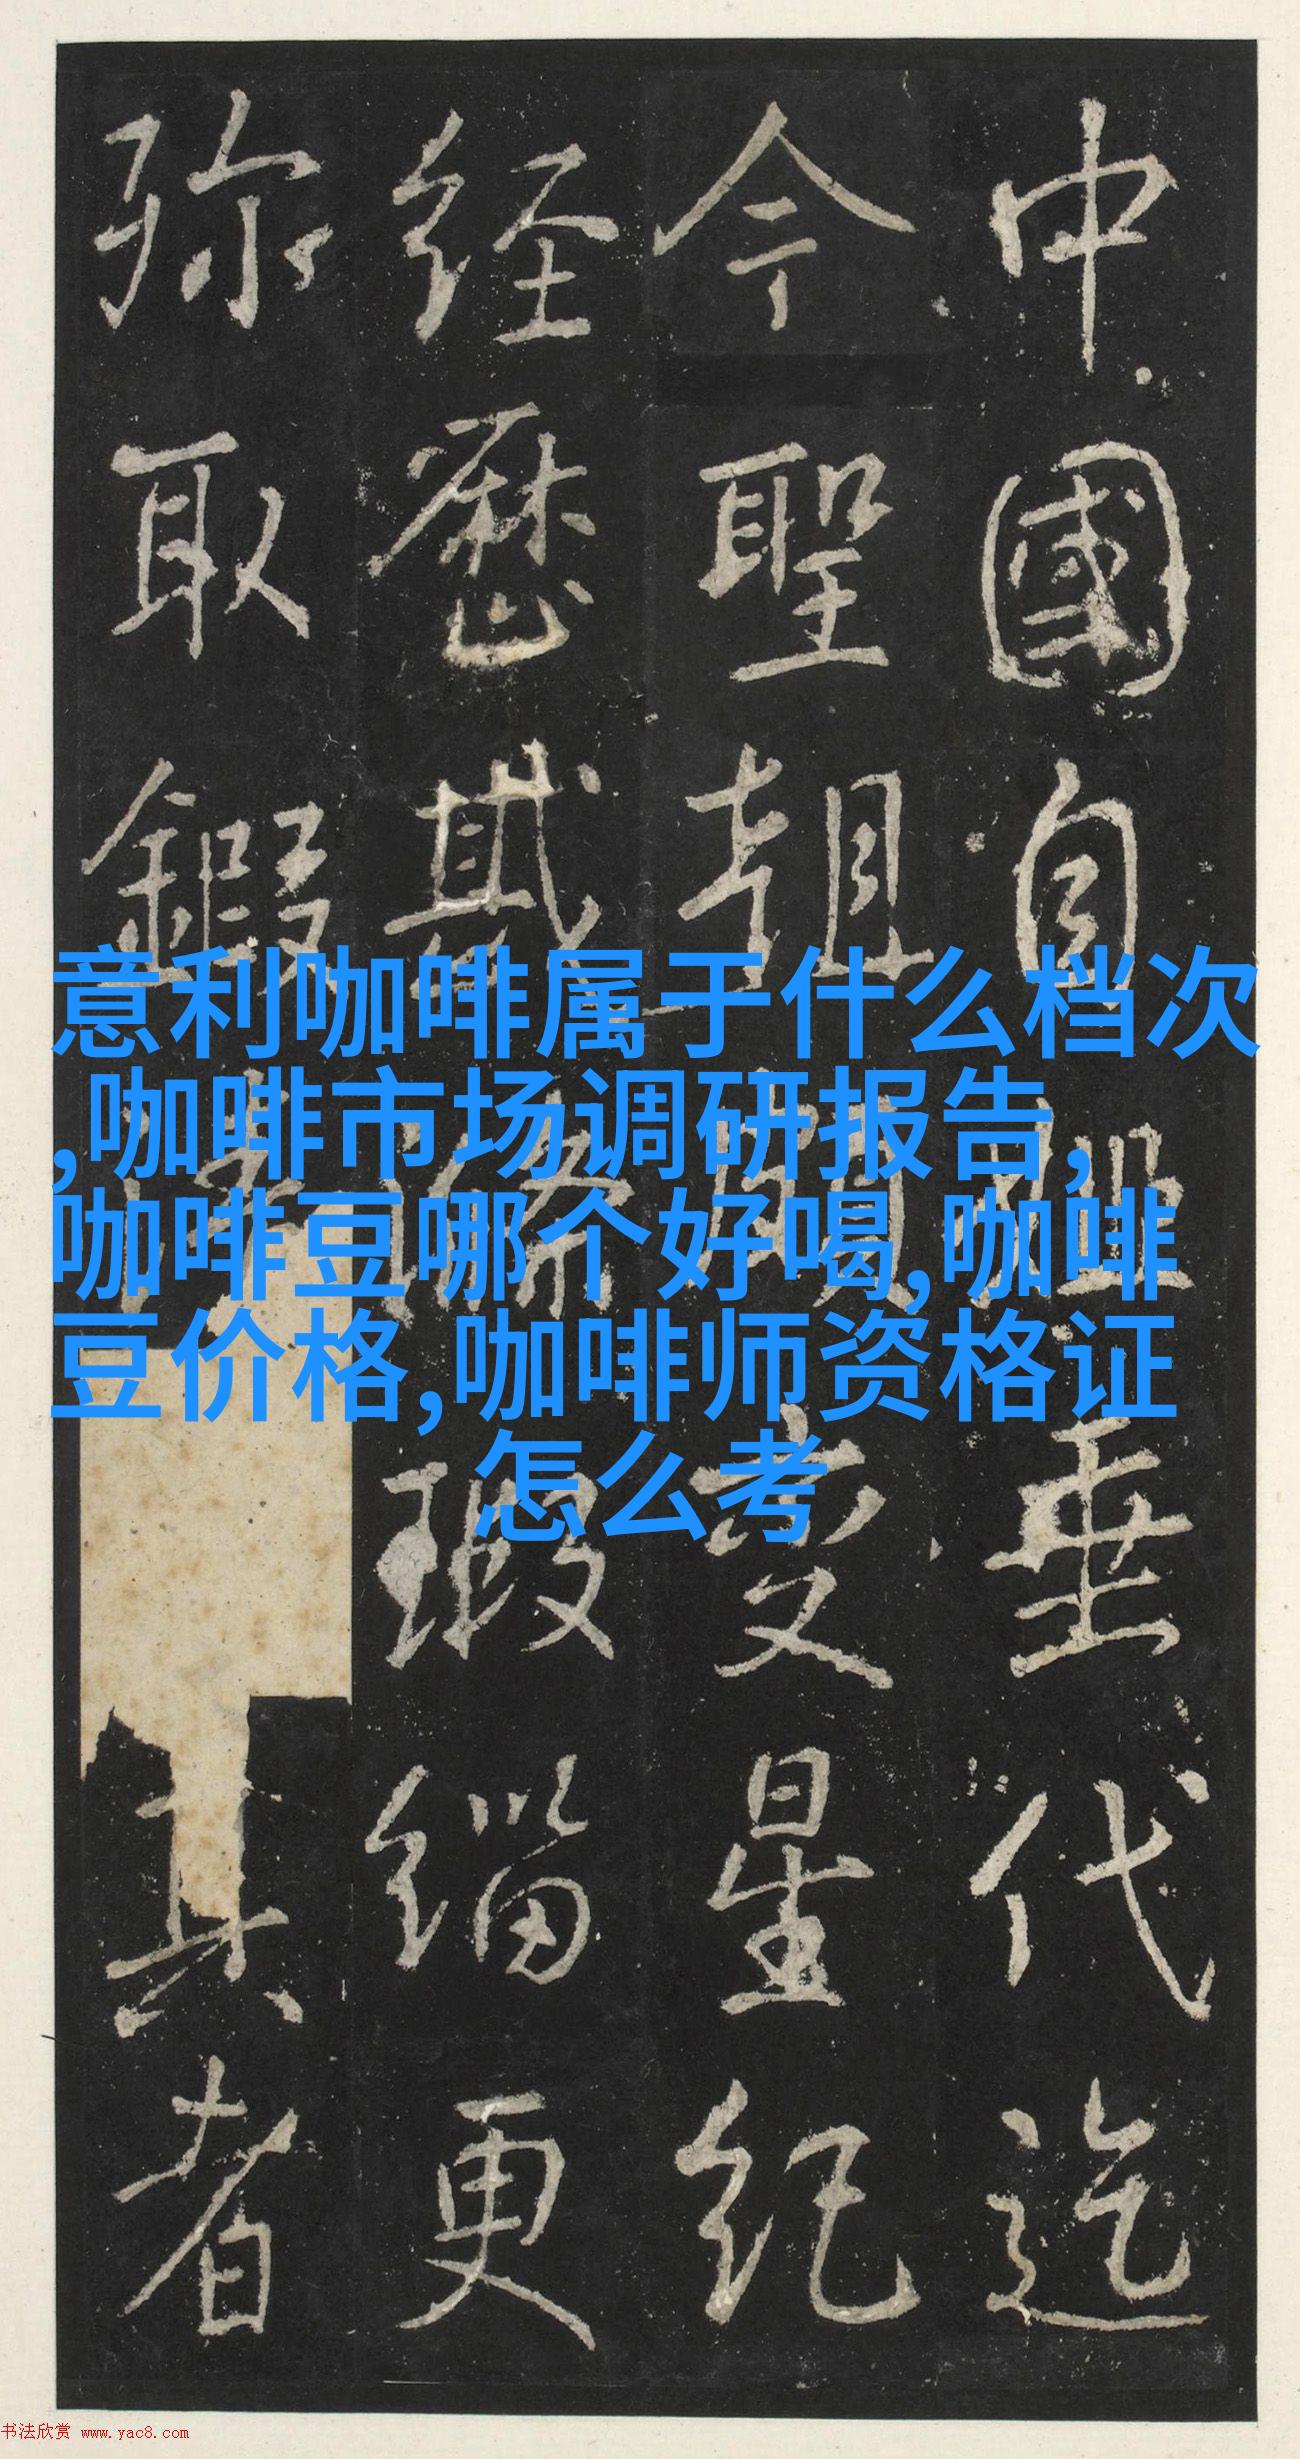 中國自垂代迄
今聖朝星紀
经歷瑕緇更
弥取者
意利咖啡属于什么档次
,咖啡市场调研报告,
咖啡豆哪个好喝,咖啡
豆价格,咖啡师资格证
怎么考
书法欣赏 www.yac8.com